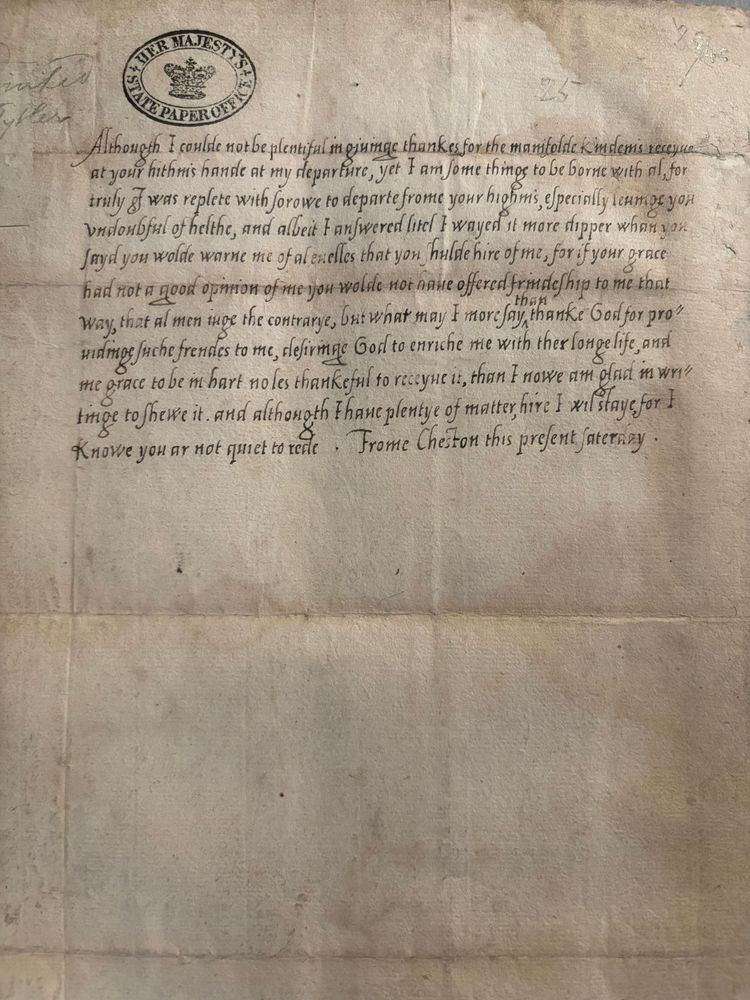 HER MAJESTY'S STATE PAPER OFFICE
25
Although I coulde not be plentiful in giuinge thankes for the manifolde kindenis receyue
at your hithnis hande at my departure, yet I am some thinge to be borne with al, for
truly I was replete with sorowe to departe frome your highnis, especially leuinge you
vndoubful of helthe, and albeit I answered litel I wayed it more dipper whan you
sayd you wolde warne me of al euelles that you shulde hire of me, for if your grace
had not a good opinion of me you wolde not haue offered frindeship to me that
way, that al men iuge the contrarye, but what may I more say than thanke God for pro〃
uidinge suche frendes to me, desiringe God to enriche me with ther longe life, and
me grace to be in hart no les thankeful to receyue it, than I nowe am glad in wri〃
tinge to shewe it. and although I haue plentye of matter, hire I wil staye for I
knowe you ar not quiet to rede . Frome Cheston this present saterday .